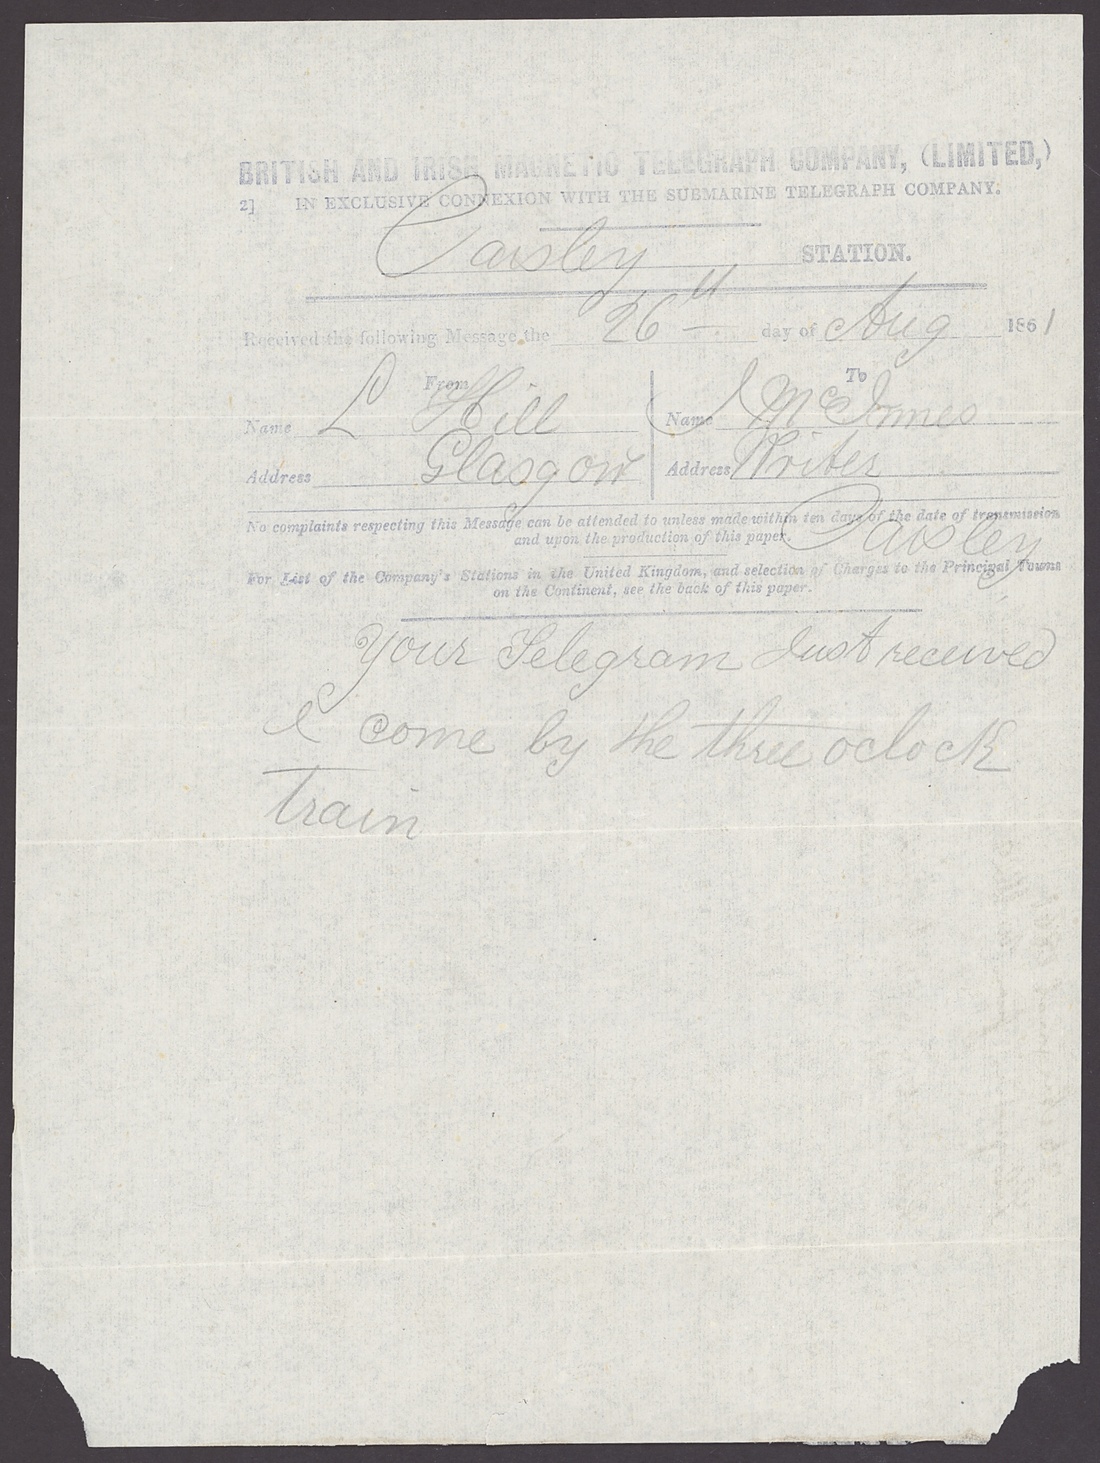 BRITISH AND IRISH MAGNETIC TELEGRAPH COMPANY, (LIMITED,)
2] IN EXCLUSIVE CONNEXION WITH THE SUBMARINE TELEGRAPH COMPANY.
Paisley STATION.
Received the following Message the 26th day of Aug 1861
From To
Name L Hill Name J McInnes
Address Glasgow Address Writer
Paisley
No complaints respecting this Message can be attended to unless made within ten days of the date of transmission
and upon the production of this paper.
For List of the Company's Stations in the United Kingdom, and selection of Charges to the Principal Towns
on the Continent, see the back of this paper.
Your Telegram Just received
I come by the three oclock
train